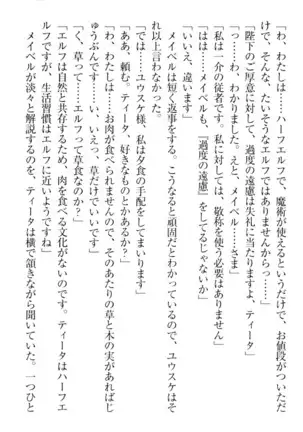 「わ、わたしは……ハーフエルフで、魔術が使えるというだけで、お値段がついただ
けで、そんな、たいそうなエルフではありませんからっ……！」
「陛下のご厚意に対して、過度の遠慮は失礼に当たりますよ、ティータ」
「っ……わ、わかりました。えと、メイベル……さま」
「私は一介の従者です。私に対しては、敬称を使う必要はありません」
「はは……メイベルも、『過度の遠慮』をしてるじゃないか」
「いいえ、違います」
メイベルは短く返事をする。こうなると頑固だとわかっているので、ユウスケはそ
れ以上言わなかった。
「では……ユウスケ様、私は夕食の手配をしてまいります」
「ああ、頼む。ティータ、好きなものとかあるかな？」
「えっ……わ、わたしは……お肉が食べられませんので、そのあたりの草と木の実があればじ
ゅうぶんです……い、いえっ、草だけでいいです」
「く、草って……エルフって草食なのか？」
「エルフは自然と共存するため、肉を食べる文化がないのです。ティータはハーフエ
ルフですが、生活習慣はエルフに近いようですね」
メイベルが淡々と解説するのを、ティータは横で頷きながら聞いていた。一つひと